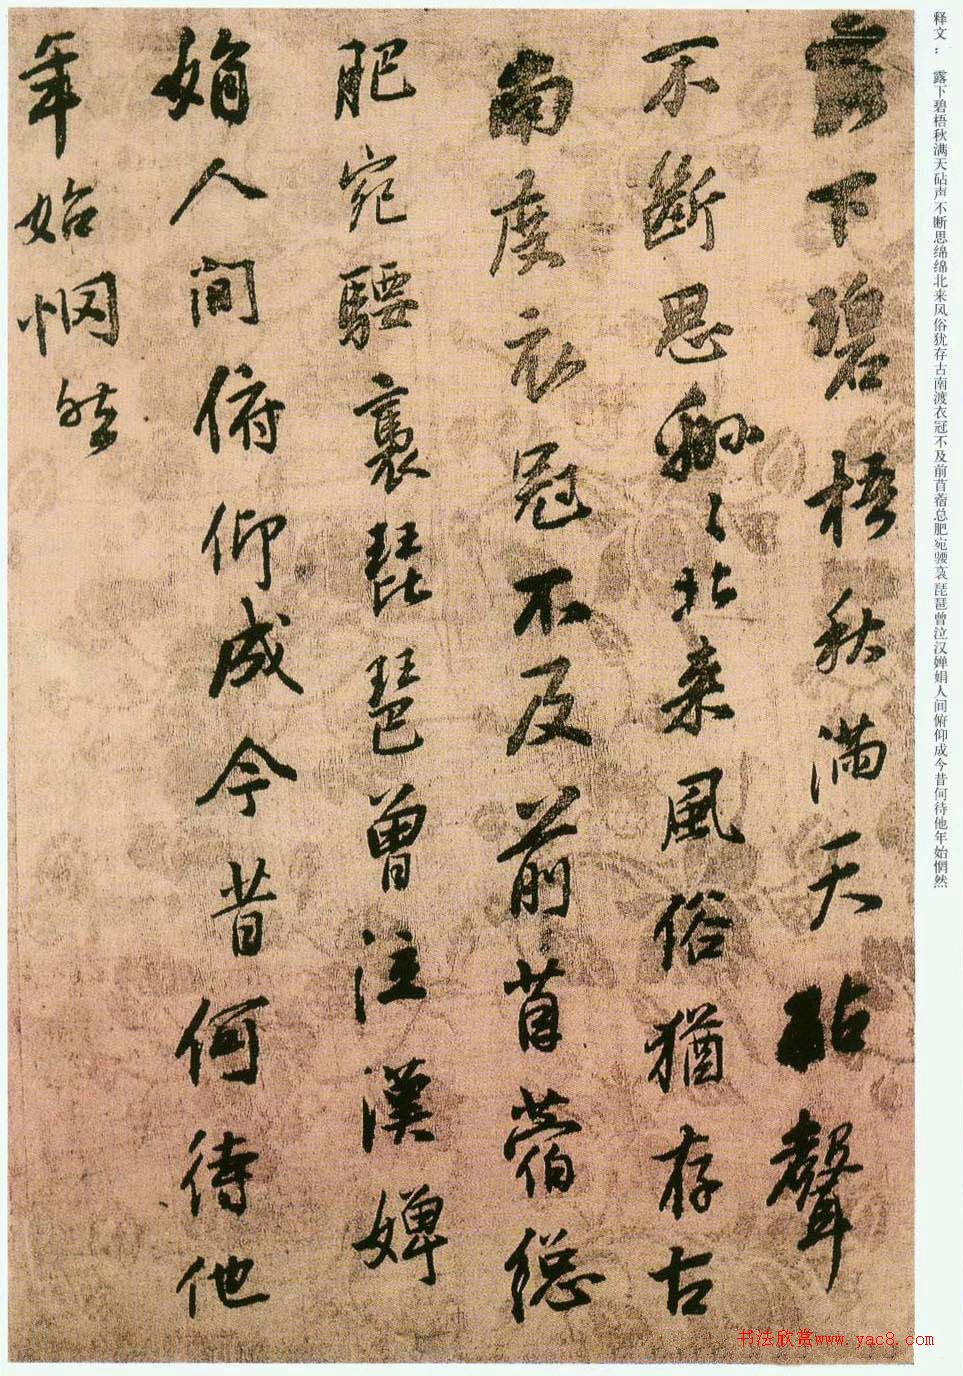 释文： 露下碧梧秋满天砧声不断思绵绵北来风俗犹存古南渡衣冠不及前苜蓿总肥宛袅琵琶曾泣汉婵娟人间俯仰成今昔何待他年始惘然
露下碧梧秋滿天砧聲
不斷思綿〻北来風俗猶存古
南度衣冠不及前苜蓿總
肥宛騕褭琵琶曾泣漢嬋
娟人間俯仰成今昔何待他
年始惘然
书法欣赏www.yac8.com